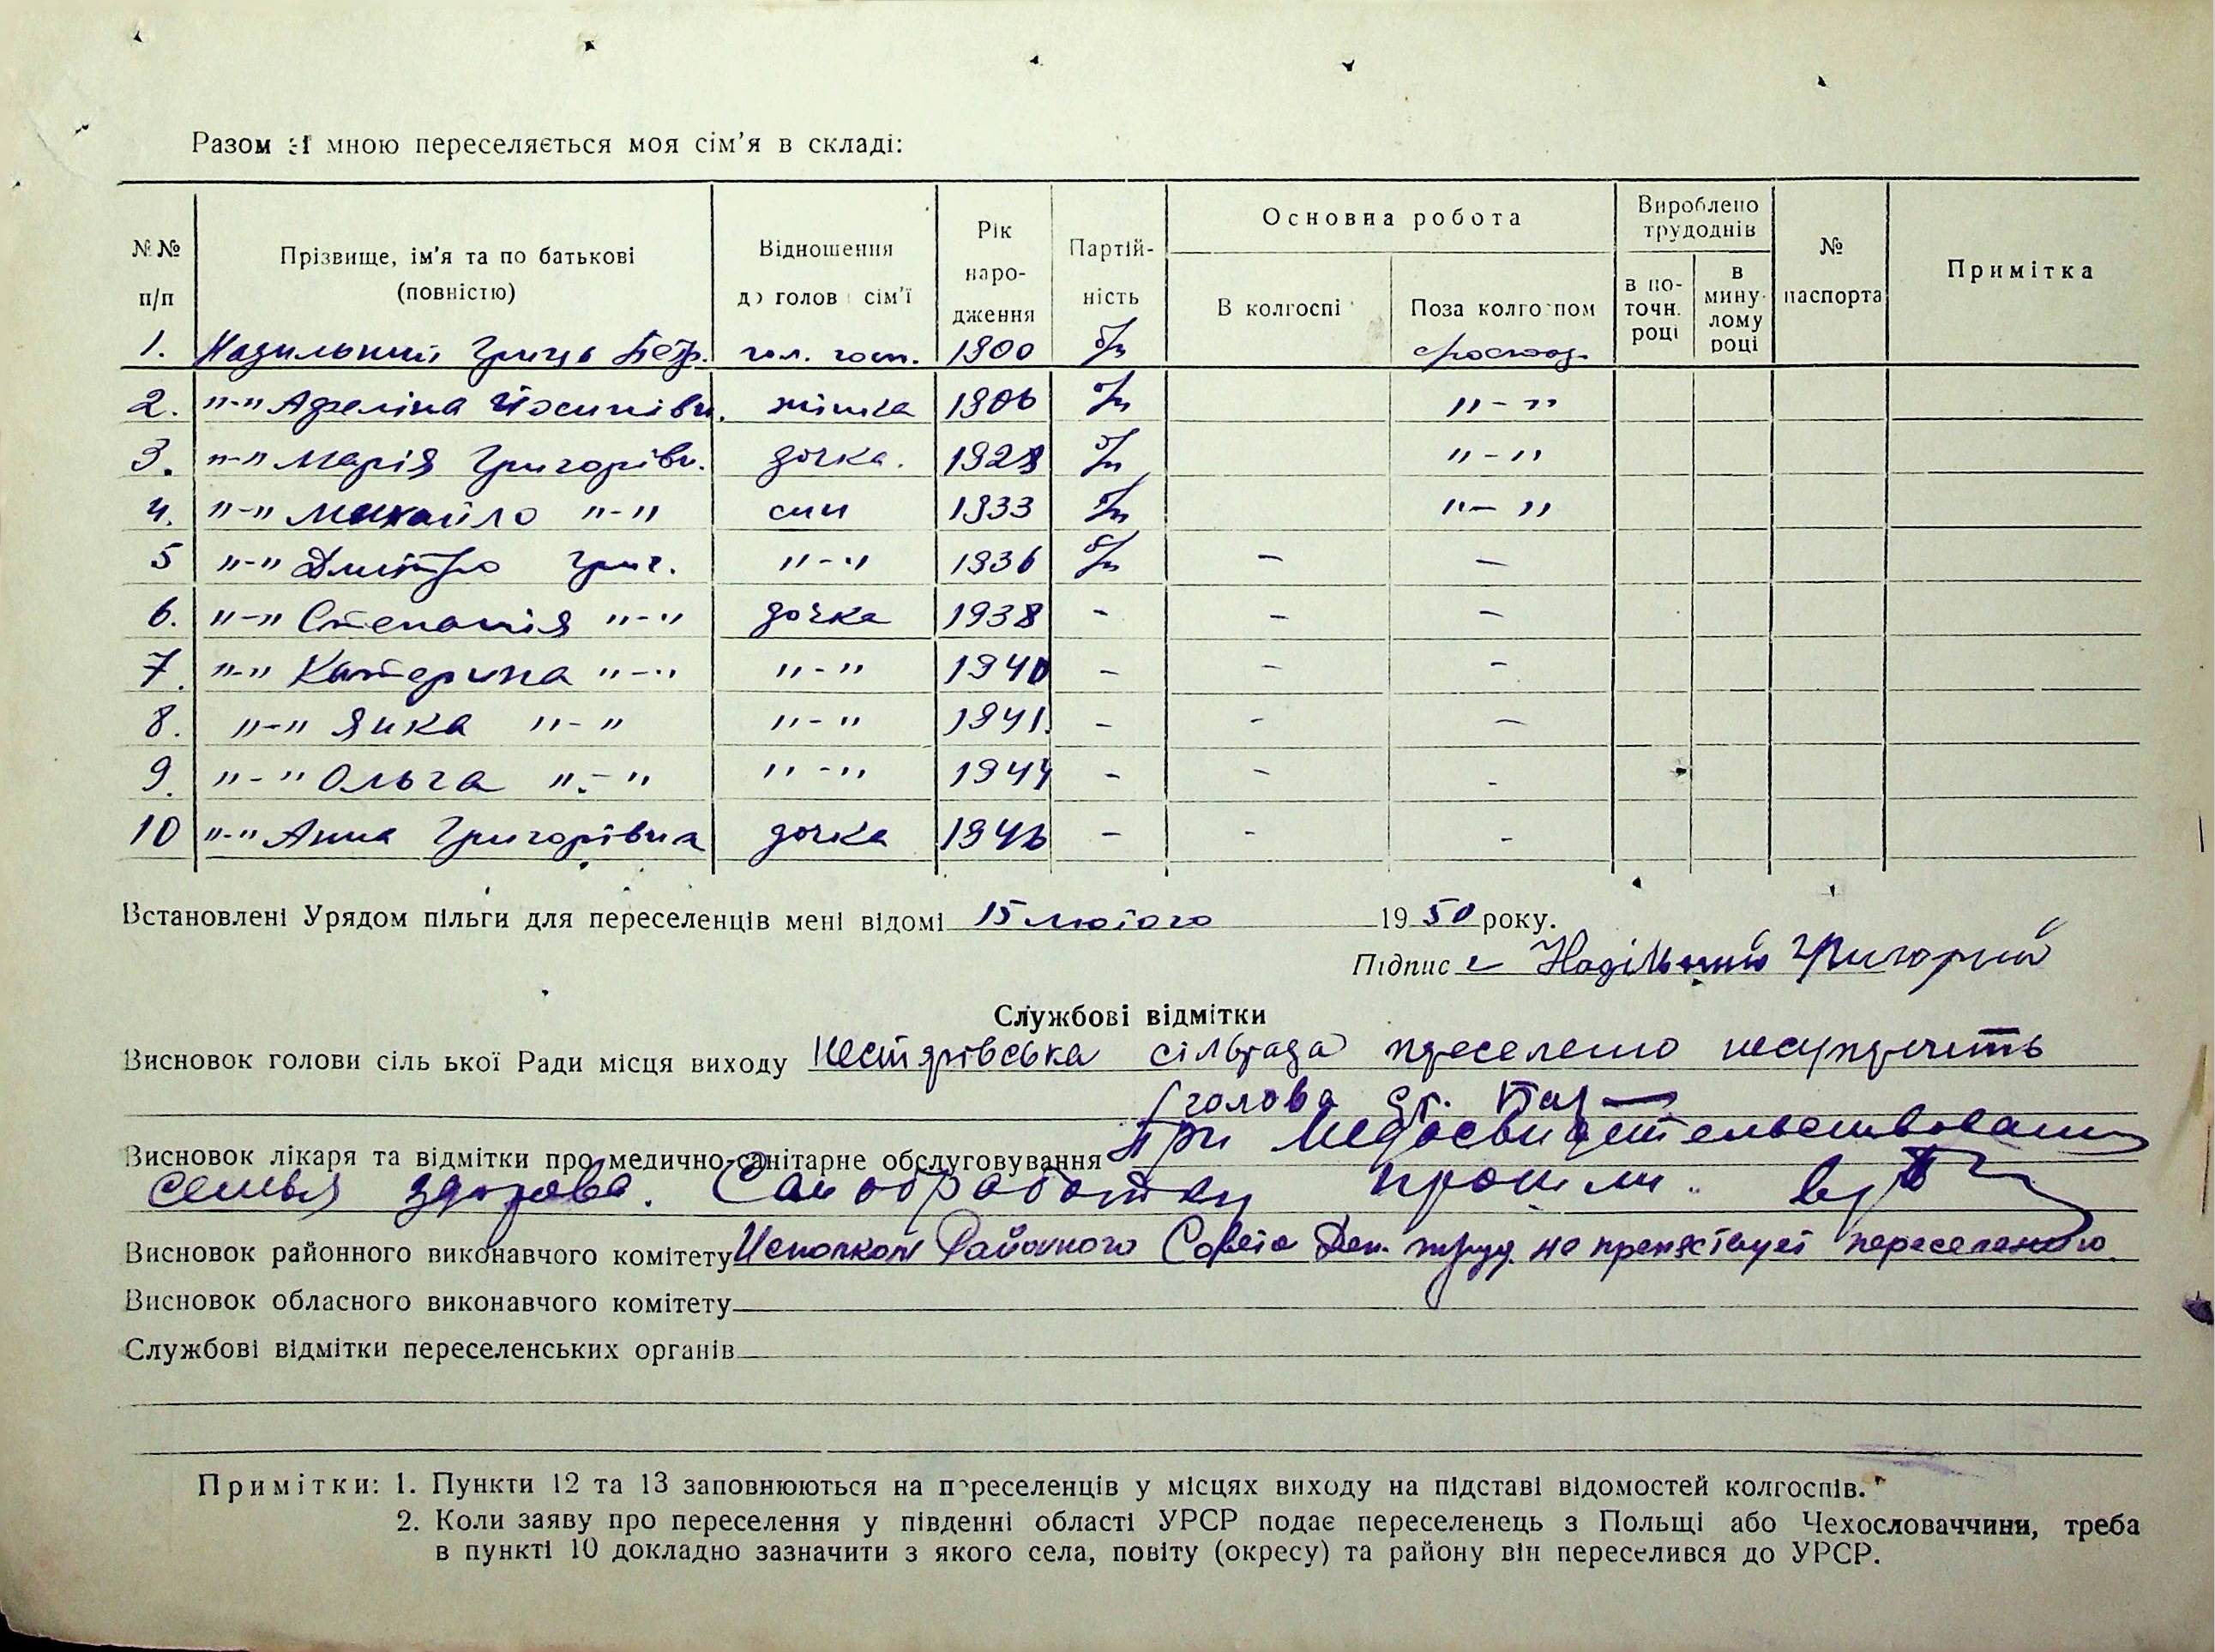 Разом зі мною переселяється моя сім'я в складі:
№№ п/п | Прізвище, ім'я та по батькові (повністю) | Відношення до голови сім'ї | Рік народження | Партійність | Основна робота: В колгоспі | Поза колгоспом | Вироблено трудоднів: в поточн. році | в минулому році | № паспорта | Примітка
1. Надильний Гриць Петр. гол. госп. 1900 б/п
2. "-" Агреліна Йосипівн. жінка 1906 б/п "-"
3. "-" Марія Григорівн. дочка. 1928 б/п "-"
4. "-" Михайло "-" син 1933 б/п "-"
5 "-" Дмитро Григ. "-" 1936 б/п – –
6. "-" Степанія "-" дочка 1938 - – –
7. "-" Катерина "-" "-" 1940 – – -
8. "-" Янка "-" "-" 1941. – - –
9. "-" Ольга "-" "-" 1944 - - -
10 "-" Анна Григорівна дочка 1946 – - -
Встановлені Урядом пільги для переселенців мені відомі 15 лютого 1950 року.
Підпис Надільний Григорий
Службові відмітки
Висновок голови сільської Ради місця виходу сільрада
голова
Висновок лікаря та відмітки про медично-санітарне обслуговування При медосвидетельствовании
семья здорова. Санобработку прошли.
Висновок районного виконавчого комітету Исполком Районного Совета Деп. труд. не препятствует переселению
Висновок обласного виконавчого комітету
Службові відмітки переселенських органів
Примітки: 1. Пункти 12 та 13 заповнюються на переселенців у місцях виходу на підставі відомостей колгоспів.
2. Коли заяву про переселення у південні області УРСР подає переселенець з Польщі або Чехословаччини, треба
в пункті 10 докладно зазначити з якого села, повіту (окресу) та району він переселився до УРСР.